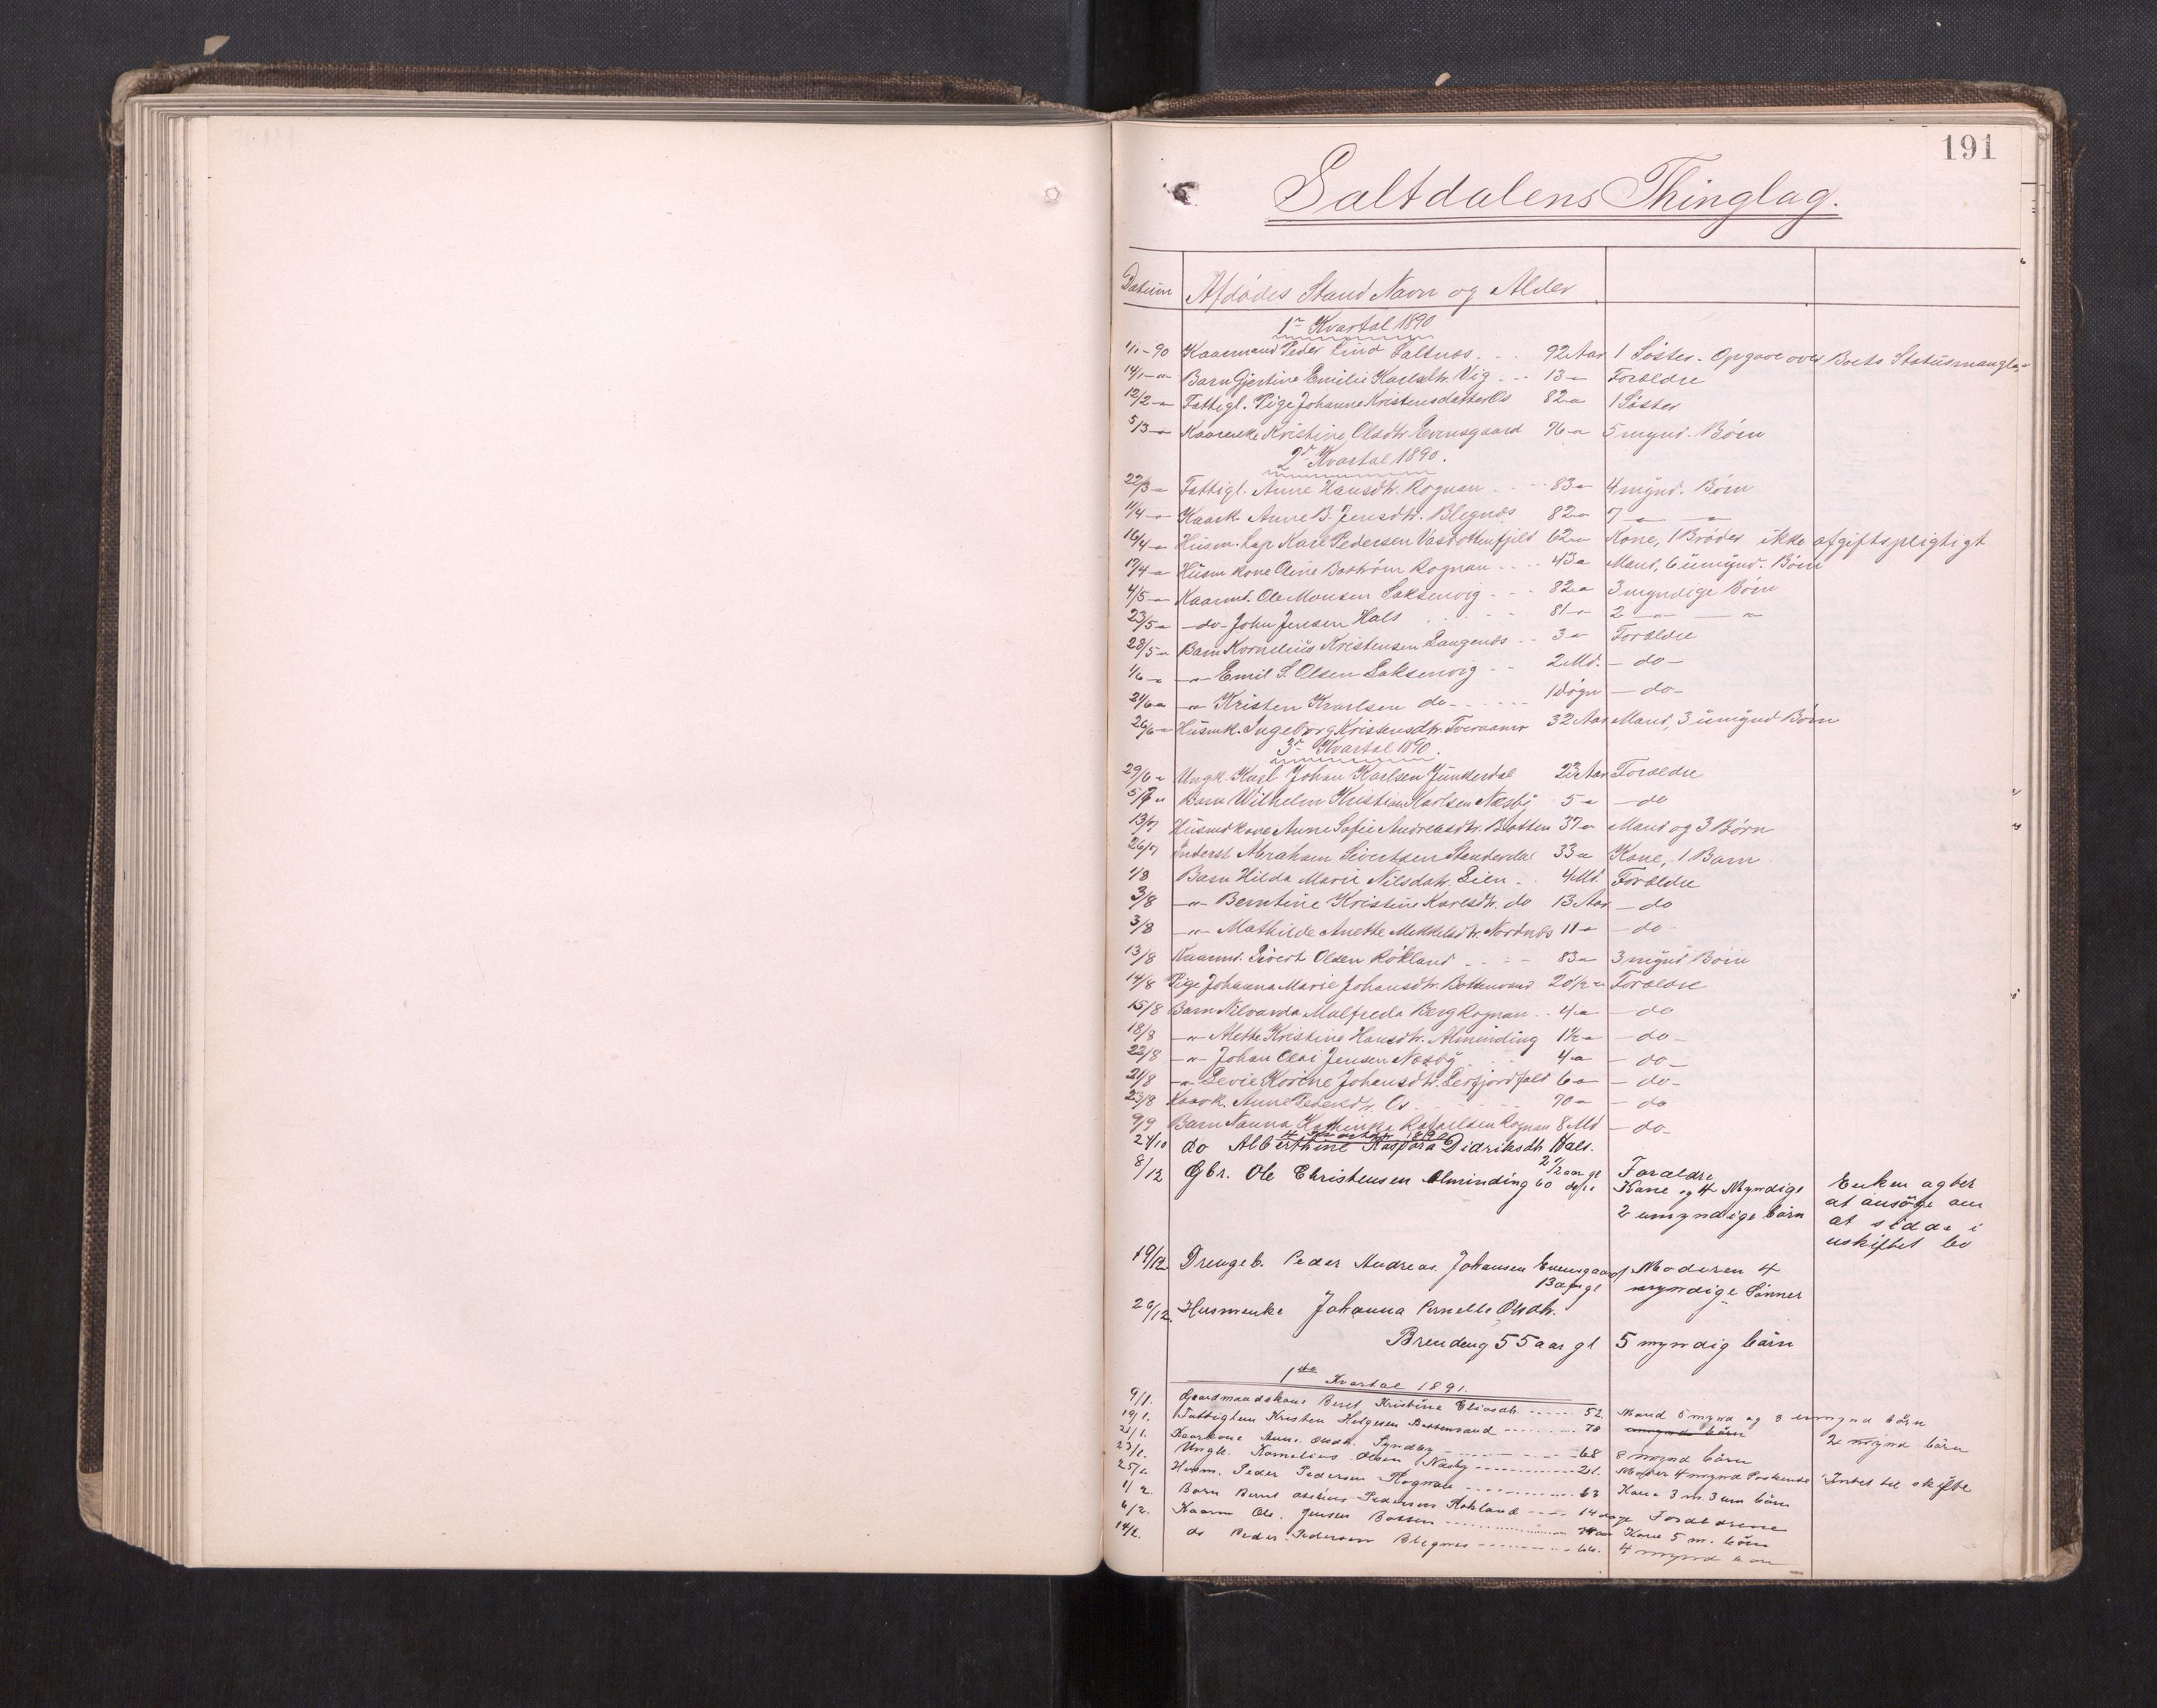 191
Saltdalens Thinglag.
Datum Afdødes Stand Navn og Alder
1ste Kvartal 1890
1/1-90 Kaarmand Peder Lind Saltnæs 92 Aar 1 Søster. Opgave over Boets Status mangler
14/1 -"- Barn Gjertine Emilie Karlsdtr. Vig 13 -"- Forældre
12/2 -"- Fattigl. Pige Johanne Kristensdatter Os 82 -"- 1 Søster
5/3 -"- Kaarenke Kristine Olsdtr. Evensgaard 76 -"- 5 mynd. Børn
2det Kvartal 1890.
22/3 -"- Fattigl. Anne Hansdtr. Rognan 83 -"- 4 mynd. Børn
11/4 -"- Kaark. Anne B. Jensdtr. Blegnæs 82 -"- 7 -"- -"-
16/4 -"- Husm. Lap Karl Pedersen Vasbottenfjeld 62 -"- Kone, 1 Broder ikke afgiftspligtigt
17/4 -"- Husm kone Oline Boström Rognan 43 -"- Mand, 6 umynd. Børn
4/5 -"- Kaarmd. Ole Monsen Saksenvig 82 -"- 3 myndige Børn
23/5 -"- -do- John Jensen Hals 81 -"- 2 -"- -"-
28/5 -"- Barn Kornelius Kristensen Langnæs 3 -"- Forældre
1/6 -"- -"- Emil S. Olsen Saksenvig 2 Md. -do-
24/6 -"- -"- Kristen Karlsen do 1 døgn -do-
26/6 -"- Husmk. Ingeborg Kristensdtr. Tveraamo 32 Aar Mand, 3 umynd Børn
3de Kvartal 1890.
29/6 -"- Ungk. Karl Johan Karlsen Junkerdal 23 Aar Forældre
5/7 -"- Barn Wilhelm Kristian Karlsen Næsby 5 -"- -do
13/7 Husmdkone Anne Sofie Andreasdtr. Botten 37 -"- Mand og 3 Børn
26/7 Inderst Abraham Sivertsen 33 -"- Kone, 1 Barn
1/8 Barn Hilda Marie Nilsdatr. Lien 4 Md. Forældre
3/8 -"- Berntine Kristine Karlsdtr. do 13 Aar -do
3/8 -"- Mathilde Anette Mikkelsdtr. Nordnæs 11 -"- -do-
13/8 Kaarmd. Sivert Olsen Røkland 83 -"- 3 mynd Børn
14/8 Pige Johanna Marie Johansdtr. Bottenvand 20 1/2 -"- Forældre
15/8 Barn Nilvarda Malfreda Berg Rognan 4 -"- -do
18/8 -"- Mette Kristine Hansdtr. Alminding 1 1/2 -"- -do-
22/8 -"- Johan Olai Jensen Næsby 4 -"- -do-
21/8 -"- Korine Johansdtr. 6 -"- -do-
23/8 Kaark. Anne Pedersdtr. Os 70 -"- -do
9/9 Barn Nanna Kathinka Rafaelsen Rognan 8 Md -do-
4 Kvartal 1890
24/10 do Alberthine Kaspara Didriksdtr Hals.
2 1/2 aar gl Forældre
8/12 Gbr. Ole Christensen Alminding 60 do Kone og 4 Myndige Enken agter
2 umyndige børn at ansøge om
at sidde i
uskiftet bo
19/12 Drengeb. Peder Andreas Johansen Evensgaard Moderen 4
13 aar gl myndige Sønner
26/12. Husmenke Johanna Pernelle Olsdtr.
Brendeng 55 aar gl 5 myndig børn
1ste Kvartal 1891.
9/1. Gaardmandskone Beret Kristine Eliasdtr. 52. Mand 5 mynd og 3 umynd børn
19/1. Fattiglem Kristen Helgesen Bottenvand 70 umynd børn 2 mynd børn
21/1. Kaarkone Anne Olsdtr. 68 8 mynd børn
23/1. Ungk. Kornelius Olsen Næsby 21. Moder 4 mynd Intet til skifte
25/1. Husm. Peder Pedersen Rognan 63 Kone 3 m. 3 um børn
1/2. Barn Bernt Pedersen Røkland 14 dage Forældrene
6/2. Kaarm Ole Jensen Botten Kone 5 m. børn
14/2. do Peder Pedersen Blegnes 66. 4 mynd børn